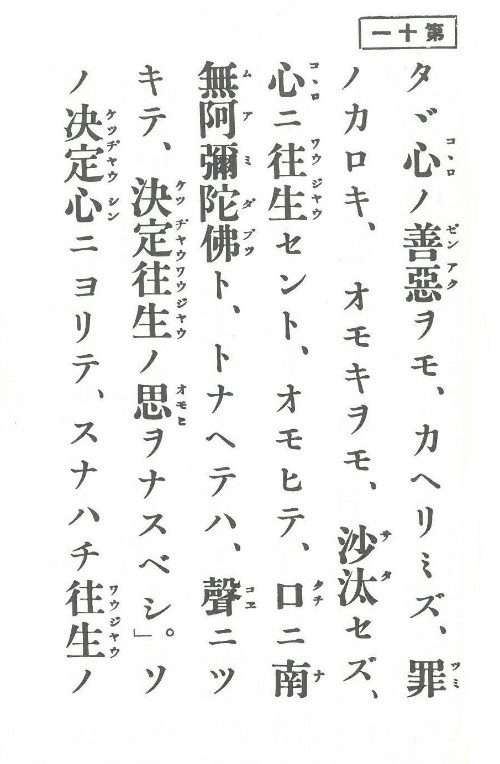 第十一
タヾ心ノ善惡ヲモ、カヘリミズ、罪
ノカロキ、オモキヲモ、沙汰セズ、
心ニ往生セント、オモヒテ、口ニ南
無阿彌陀佛ト、トナヘテハ、聲ニツ
キテ、決定往生ノ思ヲナスベシ。」ソ
ノ决定心ニヨリテ、スナハチ往生ノ